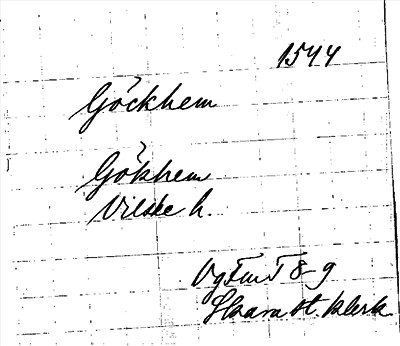 1544
Göckhem
Gökhem
Vilske h.
VgFmT 8-9
Skara st. klerk